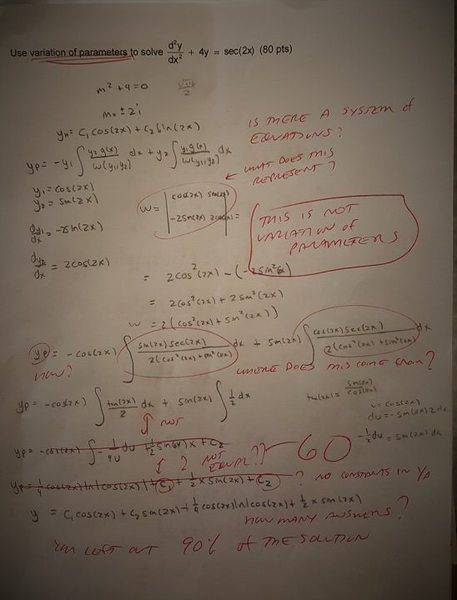 Use variation of parameters to solve d²y/dx² + 4y = sec(2x) (80 pts)
m² + 4 = 0
m = ± 2i
y_h = C₁ cos(2x) + C₂ sin(2x)
IS THERE A SYSTEM of
EQUATIONS?
y_p = -y₁ ∫ y₂ g(x)/w(y₁,y₂) dx + y₂ ∫ y₁ g(x)/w(y₁,y₂) dx
← WHAT DOES THIS
REPRESENT?
y₁ = cos(2x)
y₂ = sin(2x)
w = | cos(2x) sin(2x)
-2sin(2x) 2cos(2x) | =
THIS IS NOT
VARIATION of
PARAMETERS
dy₁/dx = -2sin(2x)
dy₂/dx = 2cos(2x)
= 2cos²(2x) - (-2sin²(2x)
= 2cos²(2x) + 2sin²(2x)
w = 2(cos²(2x) + sin²(2x))
y_p = -cos(2x) ∫ sin(2x)sec(2x)/2(cos²(2x)+sin²(2x)) dx + sin(2x) ∫ cos(2x)sec(2x)/2(cos²(2x)+sin²(2x)) dx
HOW?
WHERE DOES THIS COME FROM?
y_p = -cos(2x) ∫ tan(2x)/2 dx + sin(2x) ∫ 1/2 dx
u = cos(2x)
du = -sin(2x) 2 dx
-1/2 du = sin(2x) dx
NOT
y_p = -cos(2x) ∫ -1/4u du + x C₂
? NOT
EQUAL??
60
y_p = 1/4 cos(2x) ln|cos(2x)| + C₁ + 1/2 x sin(2x) + C₂
? NO CONSTANTS IN Y_p
y = C₁ cos(2x) + C₂ sin(2x) + 1/4 cos(2x) ln|cos(2x)| + 1/2 x sin(2x)
HOW MANY ANSWERS?
YOU LEFT OUT 90% of THE SOLUTION